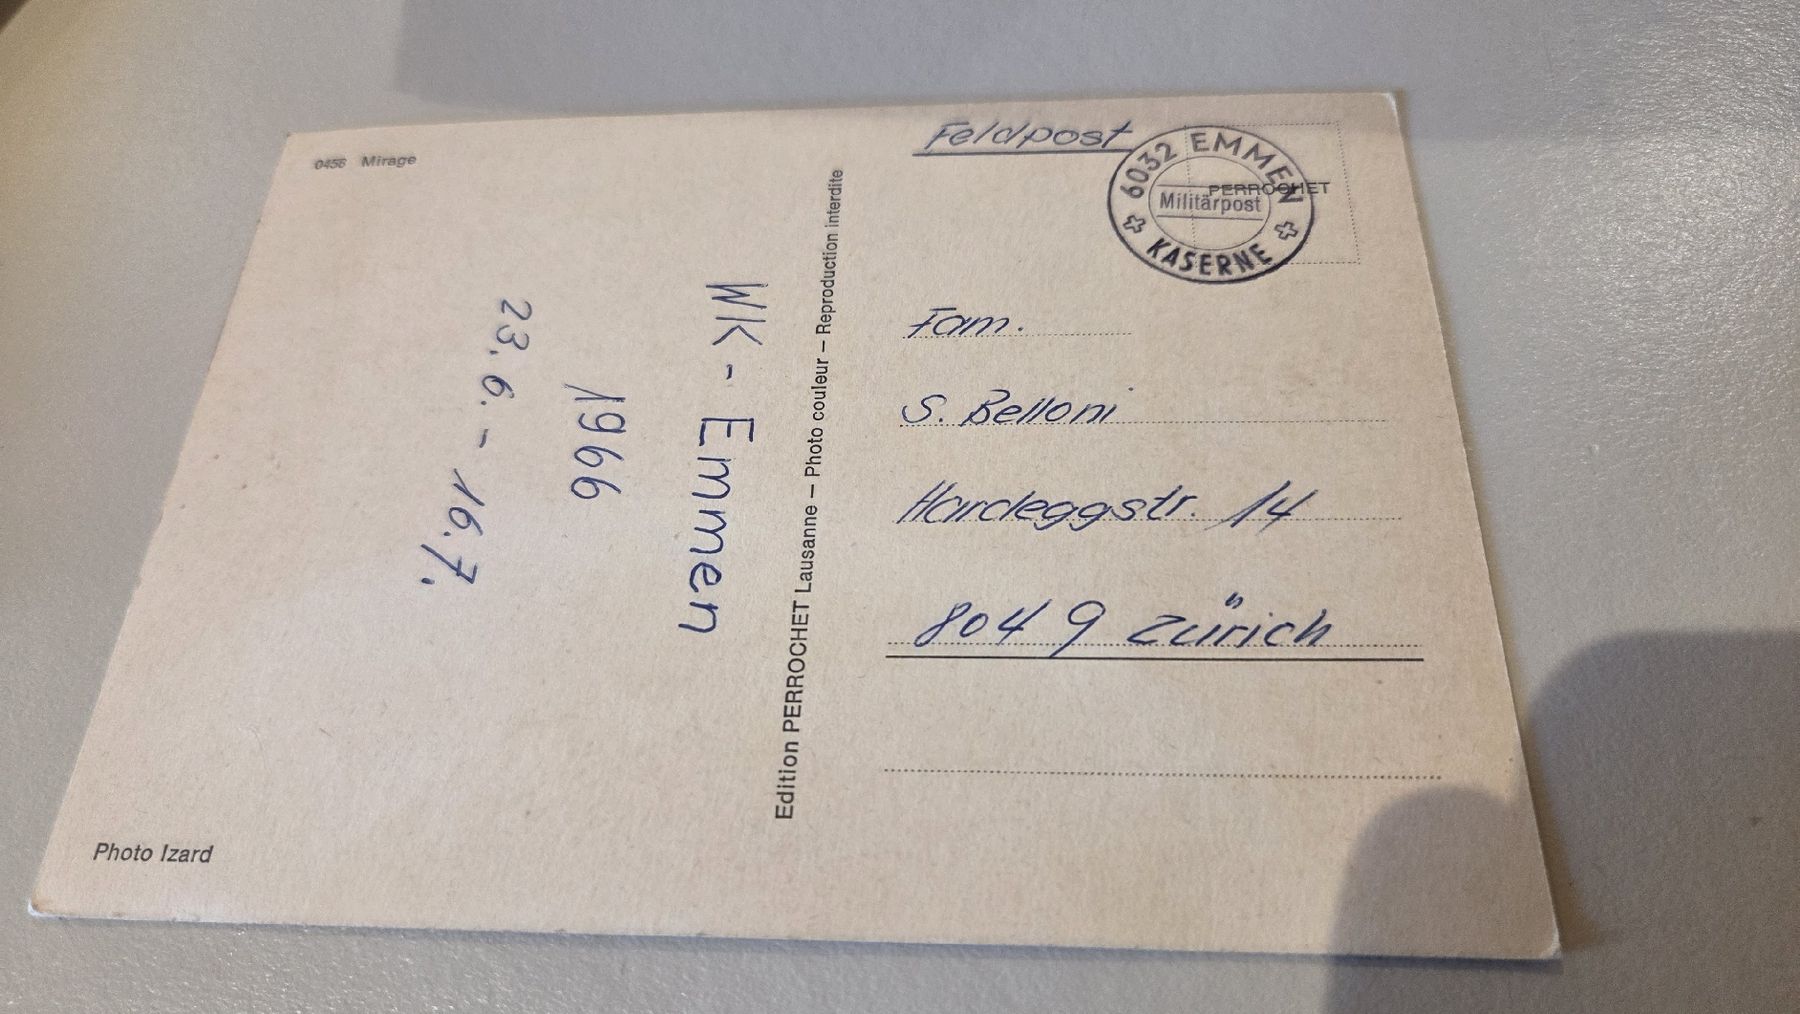 0456 Mirage
WK - Emmen
1966
23.6. - 16.7.
Photo Izard
Edition PERROCHET Lausanne – Photo couleur – Reproduction interdite
Feldpost
6032 EMMEN
Militärpost
KASERNE
PERROCHET
Fam.
S. Belloni
Hardeggstr. 14
8049 Zürich